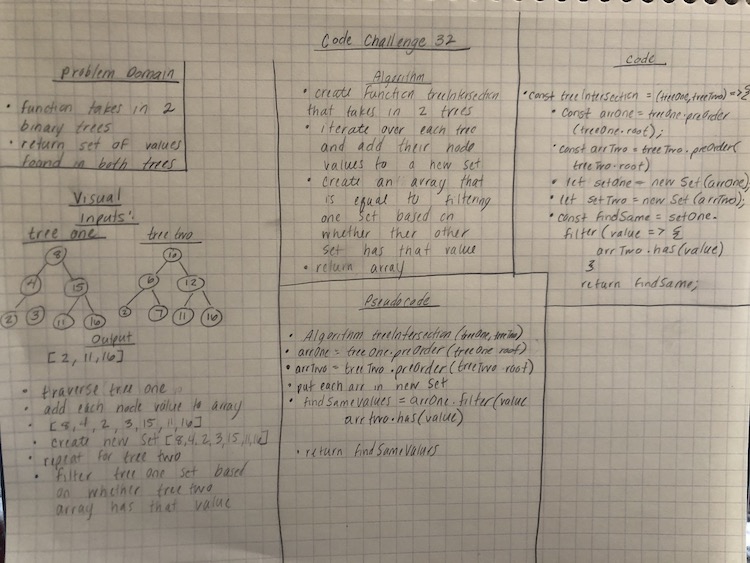 Code Challenge 32
Problem Domain
• function takes in 2
binary trees
• return set of values
found in both trees
Visual
Inputs:
tree one
tree two
8
4
15
2
3
11
16
10
6
12
2
7
11
16
Output
[2, 11, 16]
• traverse tree one
• add each node value to array
• [8, 4, 2, 3, 15, 11, 16]
• create new set [8,4,2,3,15,11,16]
• repeat for tree two
• filter tree one set based
on whether tree two
array has that value
Algorithm
• create function treeIntersection
that takes in 2 trees
• iterate over each tree
and add their node
values to a new set
• create an array that
is equal to filtering
one set based on
whether ther other
set has that value
• return array
Pseudocode
• Algorithm treeIntersection (treeOne, treeTwo)
• arrOne = treeOne.preOrder(treeOne root)
• arrTwo = treeTwo.preOrder(treeTwo root)
• put each arr in new set
• findSameValues = arrOne.filter(value
arrTwo.has(value)
• return findSameValues
Code
• const treeIntersection = (treeOne, treeTwo) => {
• const arrOne = treeOne.preorder
(treeOne.root);
• const arrTwo = treeTwo.preOrder(
treeTwo.root)
• let setOne = new Set(arrOne);
• let setTwo = new Set(arrTwo);
• const findSame = setOne.
filter(value => {
arrTwo.has(value)
}
return findSame;